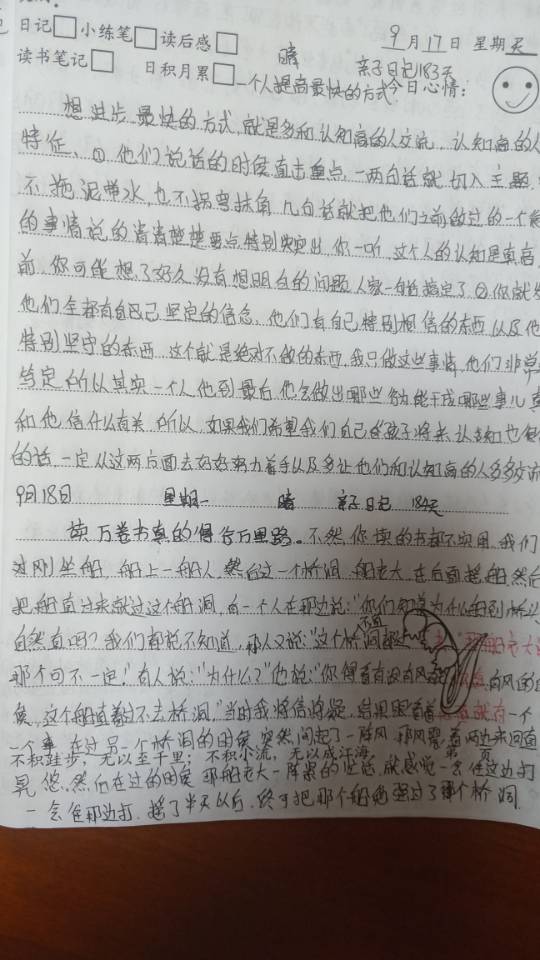 日记□ 小练笔□ 读后感□ 9月17日 星期天
读书笔记□ 日积月累□ 晴 亲子日记183天
一个人提高最快的方式 今日心情：
想进步最快的方式，就是多和认知高的人交流，认知高的人
特征、①他们说话的时侯直击重点一两句话就切入主题，
不拖泥带水，也不拐弯抹角几句话就把他们之前做过的一个
的事情说的清清楚楚要点特别突出，你一听，这个人的认知是真高
前，你可能想了好久没有想明白的问题人家一句话搞定了②你就
他们全都有自己坚定的信念，他们有自己特别相信的东西以及他
特别坚守的东西，这个就是绝对不做的东西，我只做这些事情，他们非常
笃定所以其实一个人他到最后他会做出哪些 能干成哪些事儿
和他信什么有关所以，如果我们希望我们自己的孩子将来认知也
的话，一定从这两方面去好好努力着手以及多让他们和认知高的人多多交流
9月18日 星期一 晴 亲子日记 184天
读万卷书真的得行万里路。不然你读的书都不实用。我们
刚坐船，船上一船人，然后过一个桥洞，船老大在后面摇船，然后
把船直过来就过这个船洞，有一个人在那边说："你们知道为什么船到桥头
自然直吗？我们都说不知道，那人又说："这个桥洞
那个可不一定！有人说："为什么？"他说："你得看有没有风 有风的
侯，这个船直着过不去桥洞，"当时我将信将疑，结果跟着 就有一个
一个事，在过另一个桥洞的时侯突然间起了一阵风，那风 两边来回
不积跬步，无以至千里；不积小流，无以成江海。 第 页
晃悠，然后在过的时侯那船老大一阵 就感觉一会往这边打
一会往那边打，摇了半天以后，终于把那个船勉强过了那个桥洞